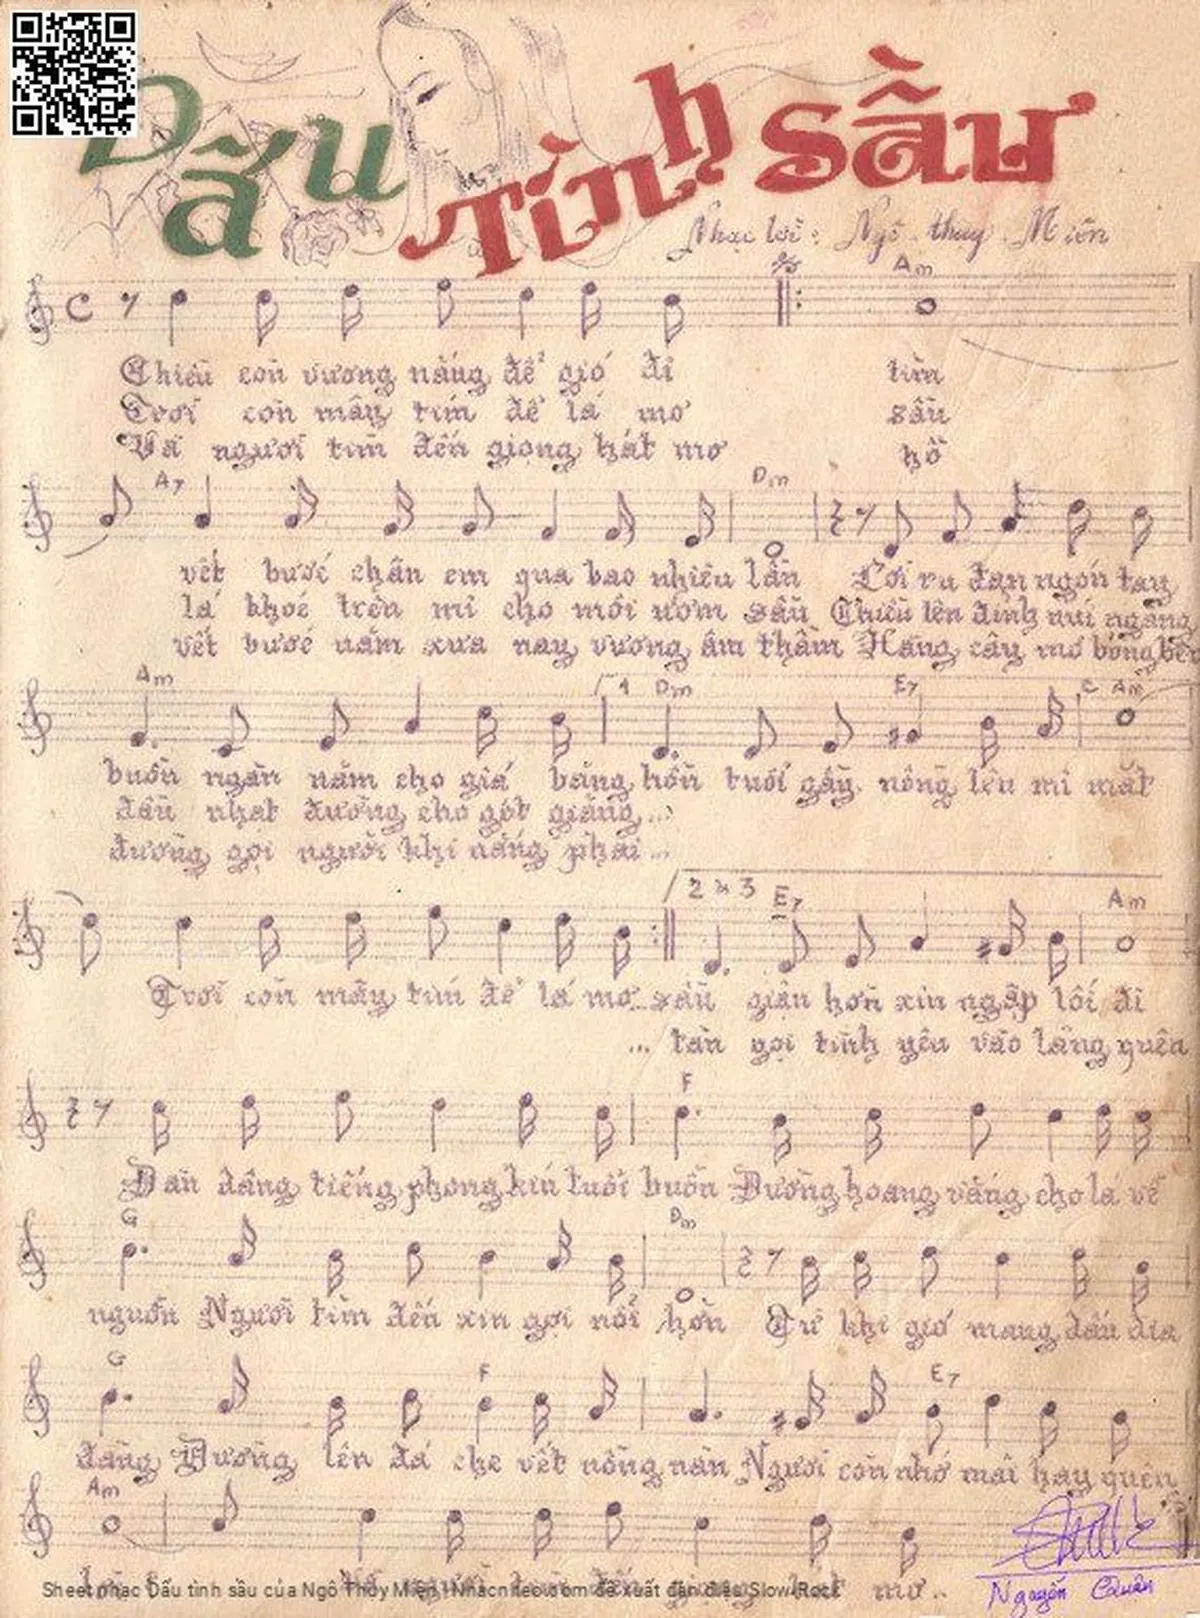 Dấu Tình Sầu
Nhạc lời: Ngô thụy Miên
Am
Chiều còn vương nắng để gió đi tìm
Trời còn mây tím để lá mơ sầu
Và người tìm đến giọng hát mơ hồ
A7 Dm
vết bước chân em qua bao nhiêu lần Lời ru đan ngón tay
lá khóc trên mi cho môi ươm sầu Chiều lên đỉnh núi ngàng
vết bước năm xưa nay vương âm thầm Hàng cây mơ bóng bên
Am 1 Dm E7 C Am
buồn ngàn năm cho giá băng hồn tuổi gầy nồng lên mi mắt
dấu nhạt đường cho gót giăng...
đường gọi người khi nắng phai...
2 & 3 E7 Am
Trời còn mây tím để lá mơ...sầu giận hờn xin ngập lối đi
... tàn gọi tình yêu vào lãng quên
F
Đàn dâng tiếng phong kín tuổi buồn Đường hoang vắng cho lá về
G Dm
nguồn Người tìm đến xin gọi nỗi hờn Từ khi gió mang dấu địa
G F E7
đàng Dương lên đá che vết nồng nàn Người còn nhớ mãi hay quên
Am
hát mơ..
Nguyễn Quân
Sheet nhạc Dấu tình sầu của Ngô Thụy Miên - Nhacnheo.com đề xuất đàn điệu Slow Rock